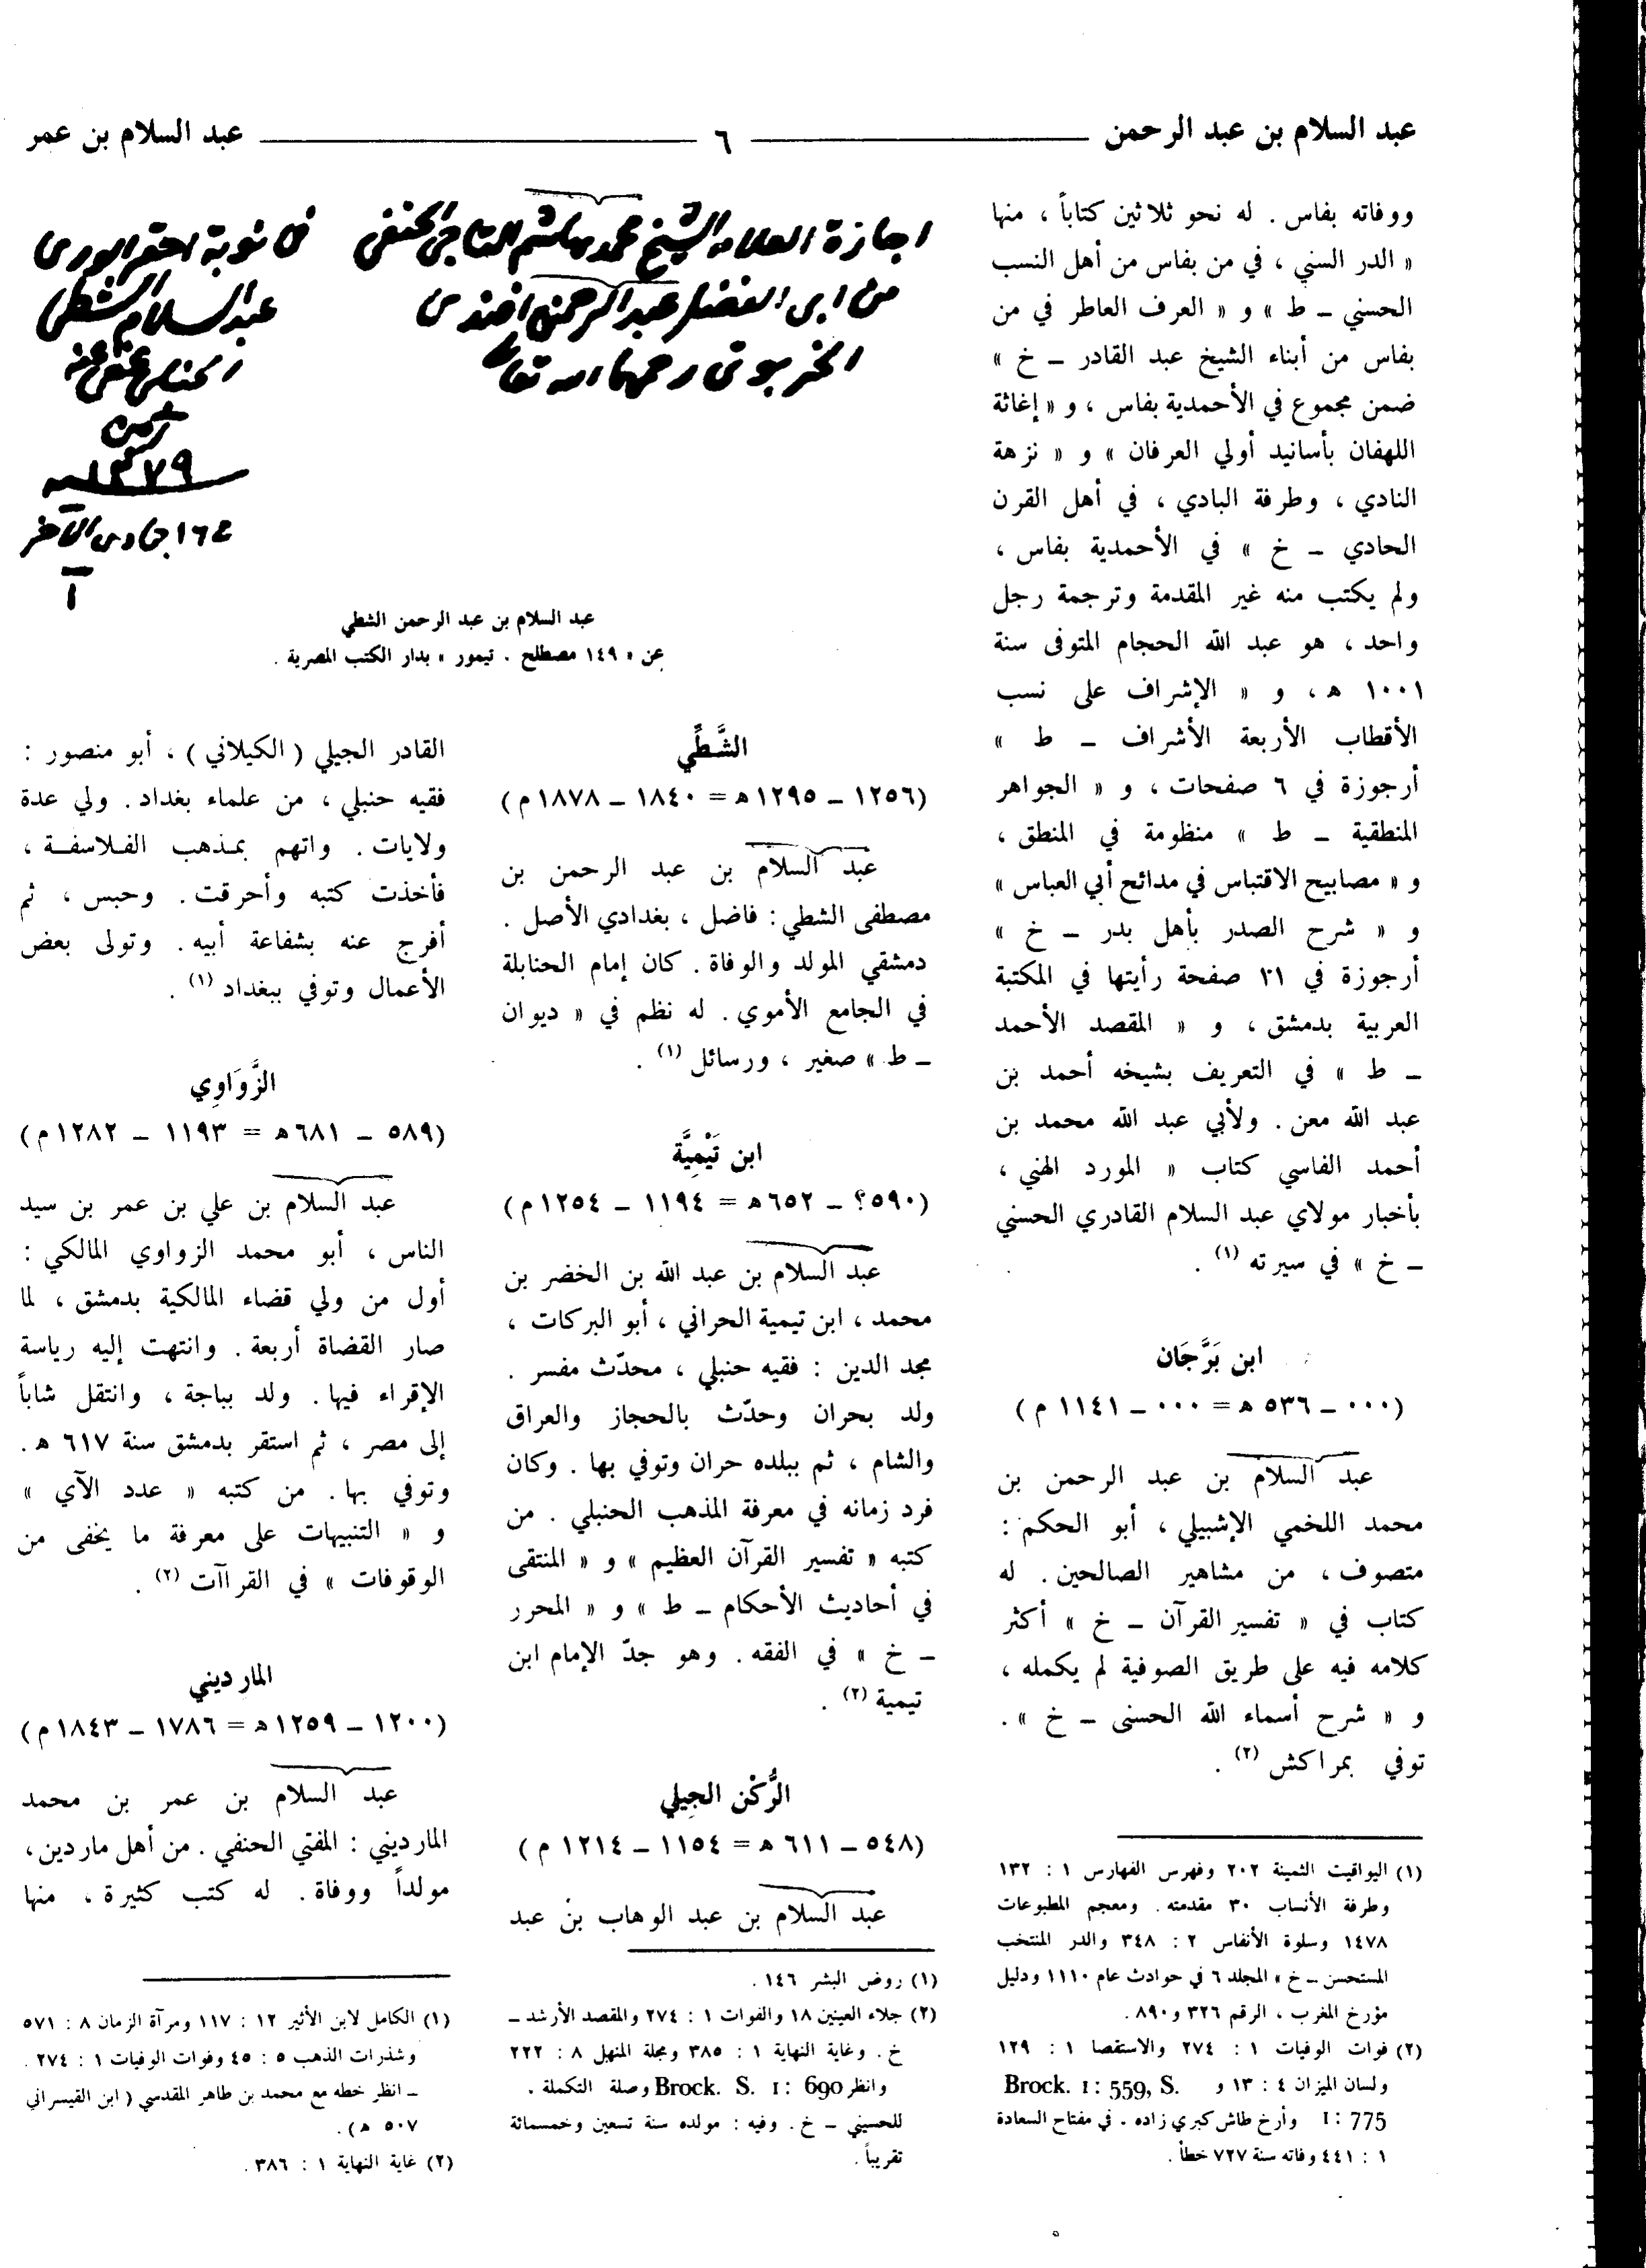 عبد السلام بن عبد الرحمن ٦ عبد السلام بن عمر
ووفاته بفاس . له نحو ثلاثين كتاباً ، منها
« الدر السني ، في من بفاس من أهل النسب
الحسني ــ ط » و « العرف العاطر في من
بفاس من أبناء الشيخ عبد القادر ــ خ »
ضمن مجموع في الأحمدية بفاس ، و « إغاثة
اللهفان بأسانيد أولي العرفان » و « نزهة
النادي ، وطرفة البادي ، في أهل القرن
الحادي ــ خ » في الأحمدية بفاس ،
ولم يكتب منه غير المقدمة وترجمة رجل
واحد ، هو عبد الله الحجام المتوفى سنة
١٠٠١ هـ ، و « الإشراف على نسب
الأقطاب الأربعة الأشراف ــ ط »
أرجوزة في ٦ صفحات ، و « الجواهر
المنطقية ــ ط » منظومة في المنطق ،
و « مصابيح الاقتباس في مدائح أبي العباس »
و « شرح الصدر بأهل بدر ــ خ »
أرجوزة في ٢١ صفحة رأيتها في المكتبة
العربية بدمشق ، و « المقصد الأحمد
ــ ط » في التعريف بشيخه أحمد بن
عبد الله معن . ولأبي عبد الله محمد بن
أحمد الفاسي كتاب « المورد الهني ،
بأخبار مولاي عبد السلام القادري الحسني
ــ خ » في سيرته (١) .
ابن بَرَّجَان
(٠٠٠ ــ ٥٣٦ هـ = ٠٠٠ ــ ١١٤١ م)
عبد السلام بن عبد الرحمن بن
محمد اللخمي الإشبيلي ، أبو الحكم :
متصوف ، من مشاهير الصالحين . له
كتاب في « تفسير القرآن ــ خ » أكثر
كلامه فيه على طريق الصوفية لم يكمله ،
و « شرح أسماء الله الحسنى ــ خ » .
توفي بمراكش (٢) .
(١) اليواقيت الثمينة ٢٠٢ وفهرس الفهارس ١ : ١٣٢
وطرفة الأنساب ٣٠ مقدمته . ومعجم المطبوعات
١٤٧٨ وسلوة الأنفاس ٢ : ٣٤٨ والدر المنتخب
المستحسن ــ خ » المجلد ٦ في حوادث عام ١١١٠ ودليل
مؤرخ المغرب ، الرقم ٣٢٦ و ٨٩٠ .
(٢) فوات الوفيات ١ : ٢٧٤ والاستقصا ١ : ١٢٩
ولسان الميزان ٤ : ١٣ و Brock. 1: 559, S.
I: 775 وأرخ طاش كبري زاده . في مفتاح السعادة
١ : ٤٤١ وفاته سنة ٧٢٧ خطأ .
اجازة العلامه الشيخ محمد هاشم التاجي الحنفي
من ابي الفضل عبد الرحمن افندي
الخربوتي رحمهما الله تعالى
في نوبة احقر الورى
عبد السلام الشطي
الحنبلي عفي عنه
١٢٧٩
جمادى الآخر
١
عبد السلام بن عبد الرحمن الشطي
عن « ١٤٩ مصطلح . تيمور » بدار الكتب المصرية .
الشَّطِّي
(١٢٥٦ ــ ١٢٩٥هـ = ١٨٤٠ ــ ١٨٧٨م)
عبد السلام بن عبد الرحمن بن
مصطفى الشطي : فاضل ، بغدادي الأصل .
دمشقي المولد والوفاة . كان إمام الحنابلة
في الجامع الأموي . له نظم في « ديوان
ــ ط » صغير ، ورسائل (١) .
ابن تَيْمِيَّة
(٥٩٠؟ ــ ٦٥٢هـ = ١١٩٤ ــ ١٢٥٤م)
عبد السلام بن عبد الله بن الخضر بن
محمد ، ابن تيمية الحراني ، أبو البركات ،
مجد الدين : فقيه حنبلي ، محدّث مفسر .
ولد بحران وحدّث بالحجاز والعراق
والشام ، ثم ببلده حران وتوفي بها . وكان
فرد زمانه في معرفة المذهب الحنبلي . من
كتبه « تفسير القرآن العظيم » و « المنتقى
في أحاديث الأحكام ــ ط » و « المحرر
ــ خ » في الفقه . وهو جدّ الإمام ابن
تيمية (٢) .
الرُّكْن الجِيلي
(٥٤٨ ــ ٦١١ هـ = ١١٥٤ ــ ١٢١٤ م)
عبد السلام بن عبد الوهاب بن عبد
(١) روض البشر ١٤٦ .
(٢) جلاء العينين ١٨ والفوات ١ : ٢٧٤ والمقصد الأرشد ــ
خ . وغاية النهاية ١ : ٣٨٥ ومجلة المنهل ٨ : ٢٢٢
وانظر Brock. S. 1: 690 وصلة التكملة .
للحسيني ــ خ . وفيه : مولده سنة تسعين وخمسمائة
تقريباً .
القادر الجيلي ( الكيلاني ) ، أبو منصور :
فقيه حنبلي ، من علماء بغداد . ولي عدة
ولايات . واتهم بمذهب الفلاسفة ،
فأخذت كتبه وأحرقت . وحبس ، ثم
أفرج عنه بشفاعة أبيه . وتولى بعض
الأعمال وتوفي ببغداد (١) .
الزَّوَاوِي
(٥٨٩ ــ ٦٨١هـ = ١١٩٣ ــ ١٢٨٢م)
عبد السلام بن علي بن عمر بن سيد
الناس ، أبو محمد الزواوي المالكي :
أول من ولي قضاء المالكية بدمشق ، لما
صار القضاة أربعة . وانتهت إليه رياسة
الإقراء فيها . ولد بباجة ، وانتقل شاباً
إلى مصر ، ثم استقر بدمشق سنة ٦١٧ هـ .
وتوفي بها . من كتبه « عدد الآي »
و « التنبيهات على معرفة ما يخفى من
الوقوفات » في القراآت (٢) .
المارديني
(١٢٠٠ ــ ١٢٥٩هـ = ١٧٨٦ ــ ١٨٤٣م)
عبد السلام بن عمر بن محمد
المارديني : المفتي الحنفي . من أهل ماردين ،
مولداً ووفاة . له كتب كثيرة ، منها
(١) الكامل لابن الأثير ١٢ : ١١٧ ومرآة الزمان ٨ : ٥٧١
وشذرات الذهب ٥ : ٤٥ وفوات الوفيات ١ : ٢٧٤ .
ــ انظر خطه مع محمد بن طاهر المقدسي ( ابن القيسراني
٥٠٧ هـ ) .
(٢) غاية النهاية ١ : ٣٨٦ .